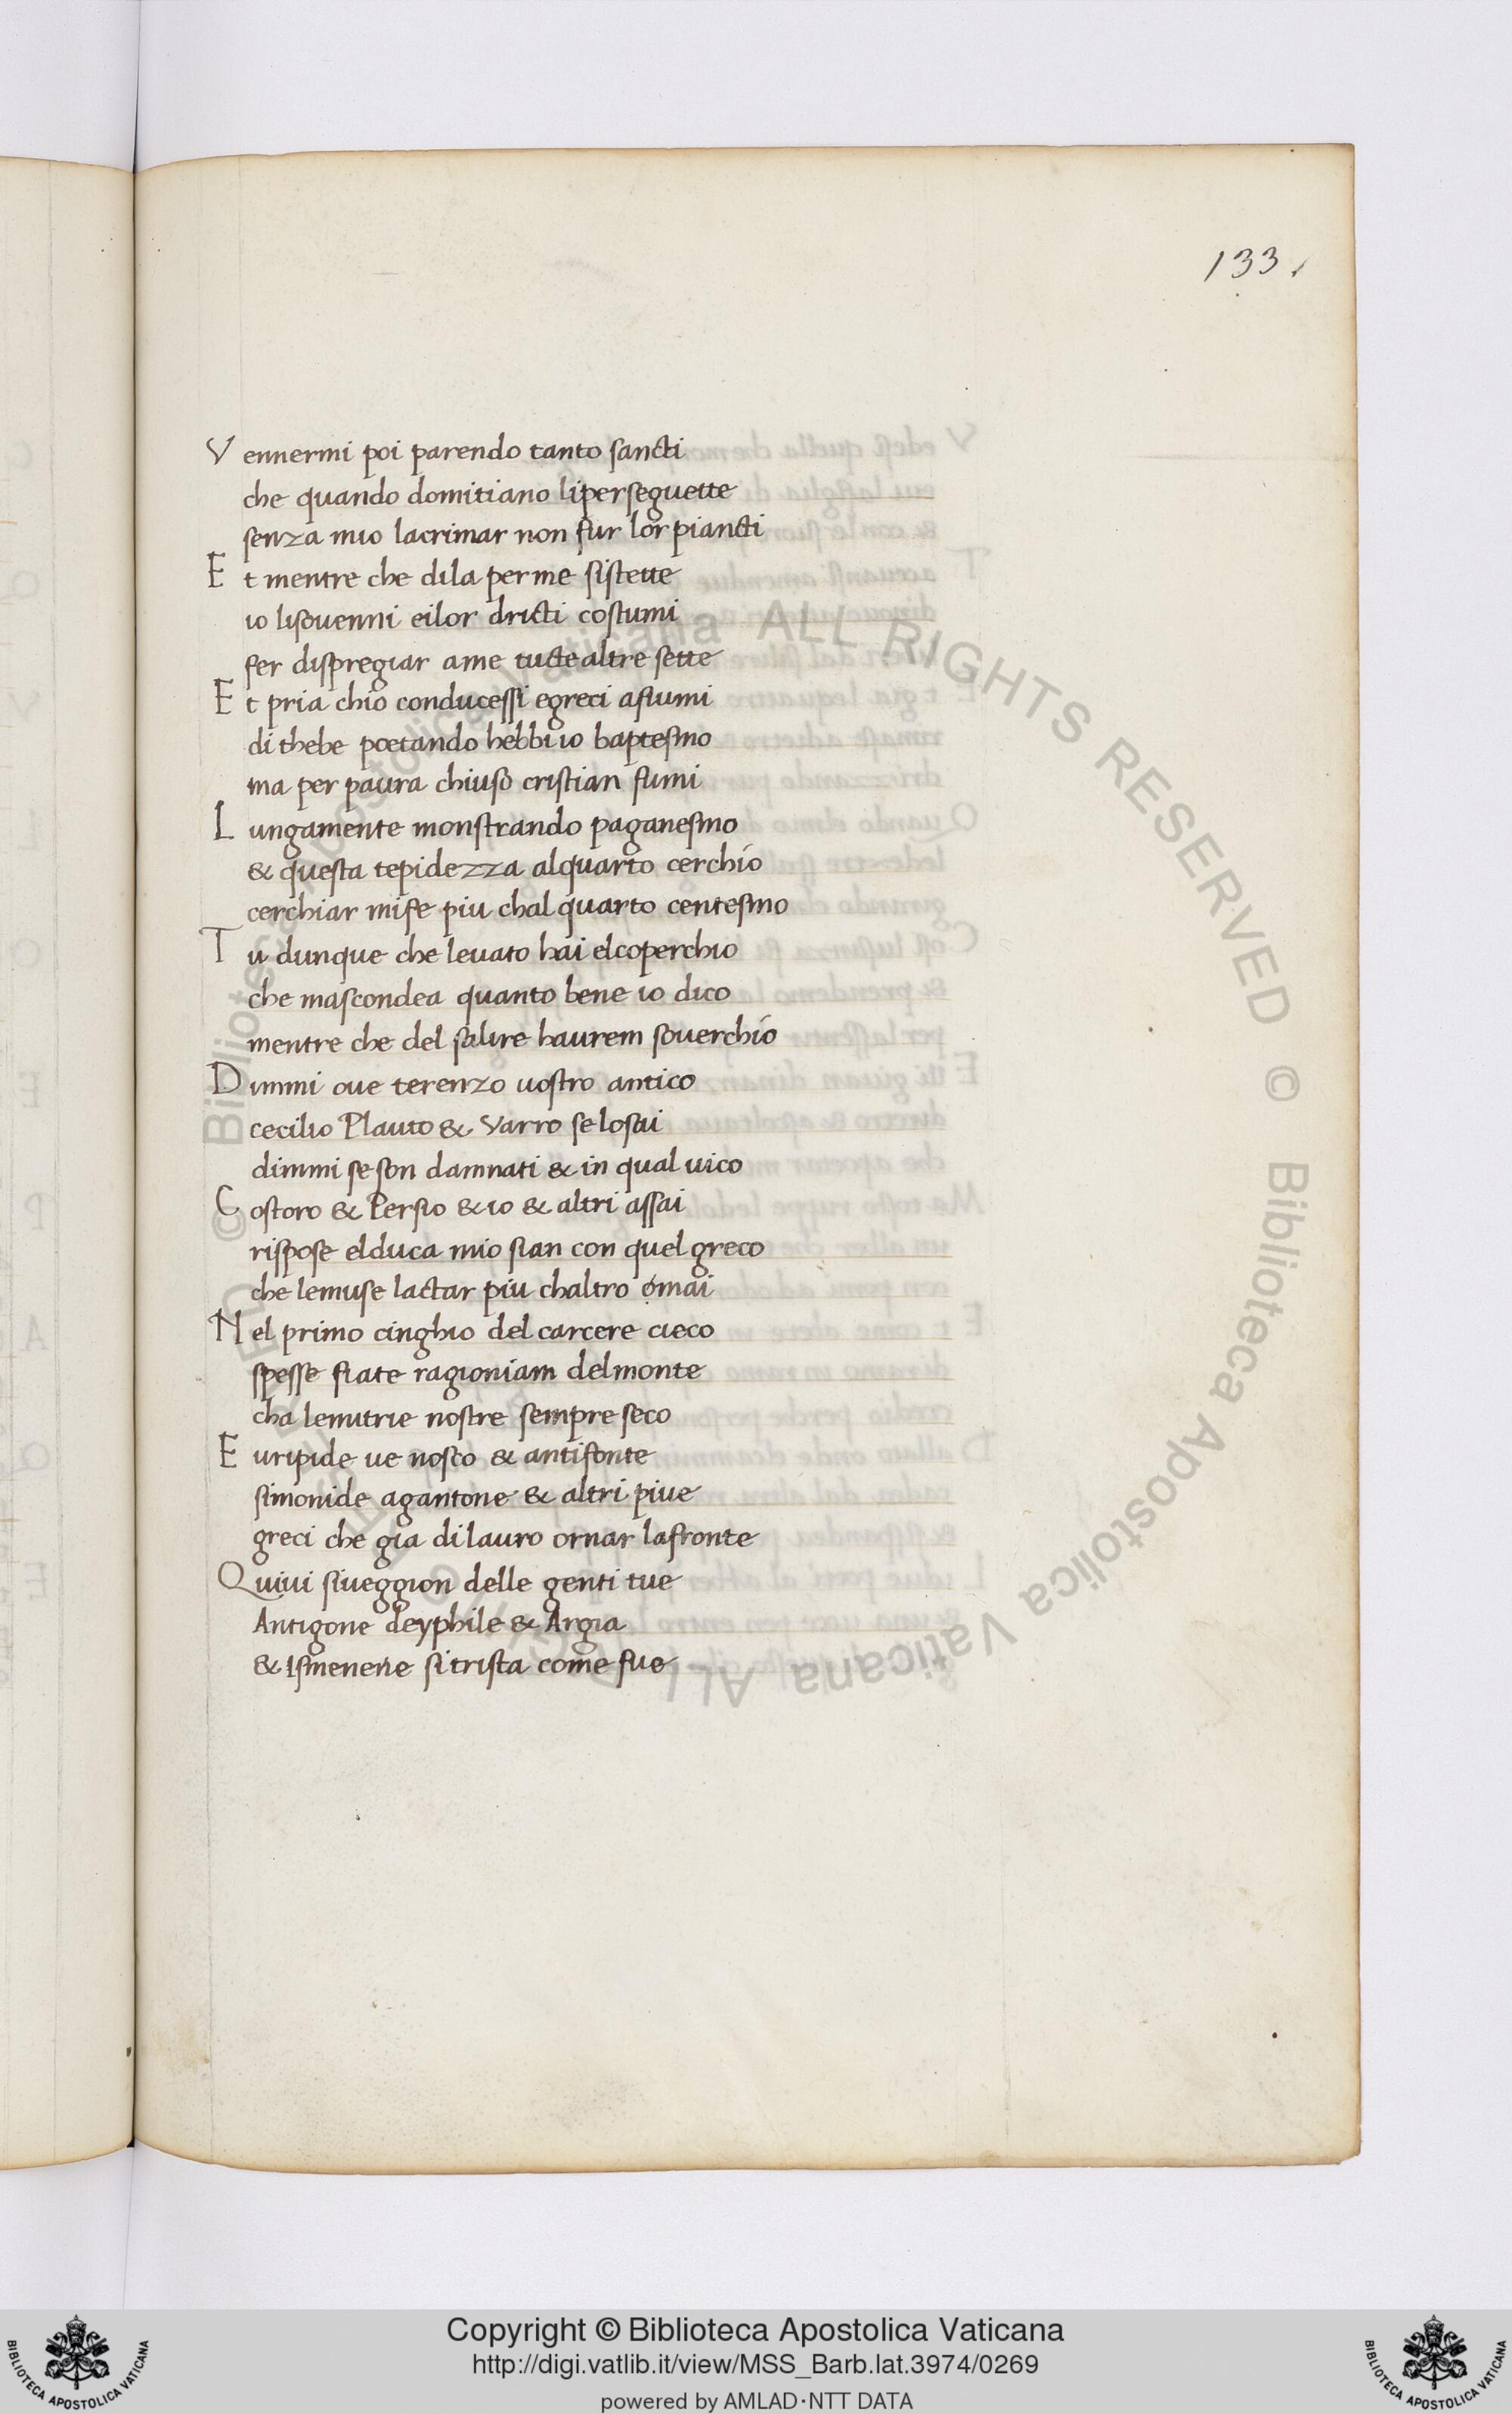 133.
Vennermi poi parendo tanto sancti
che quando domitiano liperseguette
senza mio lacrimar non fur lor piancti
Et mentre che dila per me sistette
io lisovenni eilor dricti costumi
fer dispregiar ame tucte altre sette
Et pria chio conducessi egreci afiumi
di thebe poetando hebbi io baptesmo
ma per paura chiuso cristian fumi
Lungamente monstrando paganesmo
& questa tepidezza alquarto cerchio
cerchiar mife piu chal quarto centesmo
Tu dunque che levato hai elcoperchio
che mascondea quanto bene io dico
mentre che del salire haurem soverchio
Dimmi ove terenzo vostro antico
cecilio Plauto & Varro se losai
dimmi se son damnati & in qual vico
Costoro & Persio & io & altri assai
rispose elduca mio sian con quel greco
che lemuse lactar piu chaltro omai
Nel primo cinghio del carcere cieco
spesse fiate ragioniam delmonte
cha lenutrie nostre sempre seco
Euripide ve nosco & antifonte
simonide agantone & altri piue
greci che gia di lauro ornar lafronte
Quivi siveggion delle genti tue
Antigone deyphile & Argia
& Ismenene si trista come fue
Copyright © Biblioteca Apostolica Vaticana
http://digi.vatlib.it/view/MSS_Barb.lat.3974/0269
powered by AMLAD·NTT DATA
BIBLIOTECA APOSTOLICA VATICANA
BIBLIOTECA APOSTOLICA VATICANA
© Biblioteca Apostolica Vaticana ALL RIGHTS RESERVED
© Biblioteca Apostolica Vaticana ALL RIGHTS RESERVED